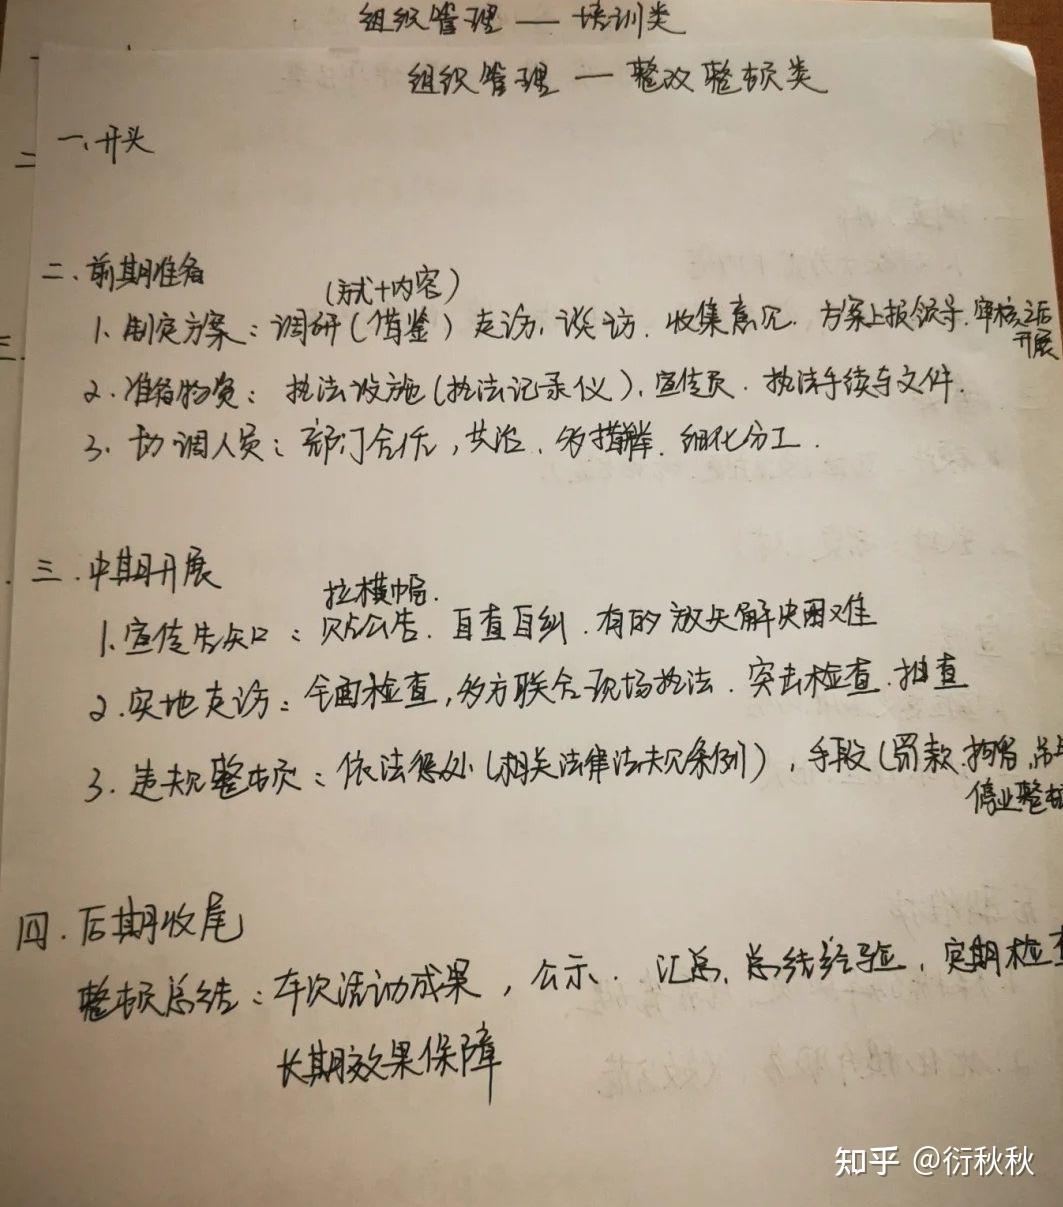 组织管理 — 培训类
组织管理 — 整改整顿类
一、开头
二、前期准备
(方式+内容)
1. 制定方案：调研(借鉴) 走访、谈访、收集意见. 方案上报领导. 审核之后
开展
2. 准备物资：执法设施(执法记录仪)、宣传页. 执法手续与文件.
3. 协调人员：部门合作, 共治、细化分工.
三. 中期开展
拉横幅.
1. 宣传告知：贴公告. 自查自纠. 有的放矢解决困难
2. 实地走访：全面检查, 多方联合现场执法. 突击检查. 抽查
3. 违规整顿：依法惩处(相关法律法规条例), 手段(罚款.拘留.
停业整顿
四. 后期收尾
整顿总结：本次活动成果, 公示. 汇总, 总结经验, 定期检查
长期效果保障
知乎 @衍秋秋